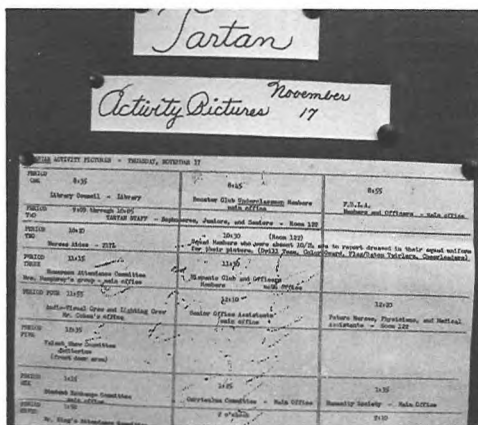 Tartan
Activity Pictures November
17
ACTIVITY PICTURES - THURSDAY, NOVEMBER 17
PERIOD
ONE 8:35
Library Council - Library
8:45
Booster Club Underclassmen Members
main office
8:55
Members and Officers - main office
PERIOD
TWO 9:00 through 10:05
TARTAN STAFF - Sophomores, Juniors, and Seniors - Room 122
PERIOD
10:10
Nurses Aides -
10:30 (Room 122)
Squad Members who were absent 10/ are to report dressed in their squad uniform
for their picture. (Drill Team, Color Guard, Flag/Baton Twirlers, Cheerleaders)
PERIOD
THREE 11:15
Homeroom Attendance Committee
Mrs. Humphrey's group - main office
11:30
Hispanic Club and Officers
Members main Office
PERIOD FOUR 11:55
Audio-Visual Crew and Lighting Crew
Mr. Cohen's office
12:10
Senior Office Assistants
main office
12:20
Future Nurses, Physicians, and Medical
Assistants - Room 122
PERIOD
FIVE 12:35
Talent Show Committee
Auditorium
(front door area)
PERIOD
SIX 1:15
Student Exchange Committee
main office
1:25
Curriculum Committee - Main Office
1:35
Humanity Society - Main Office
PERIOD
1:50
Mr. King's Attendance Committee
2 o'clock
2:10